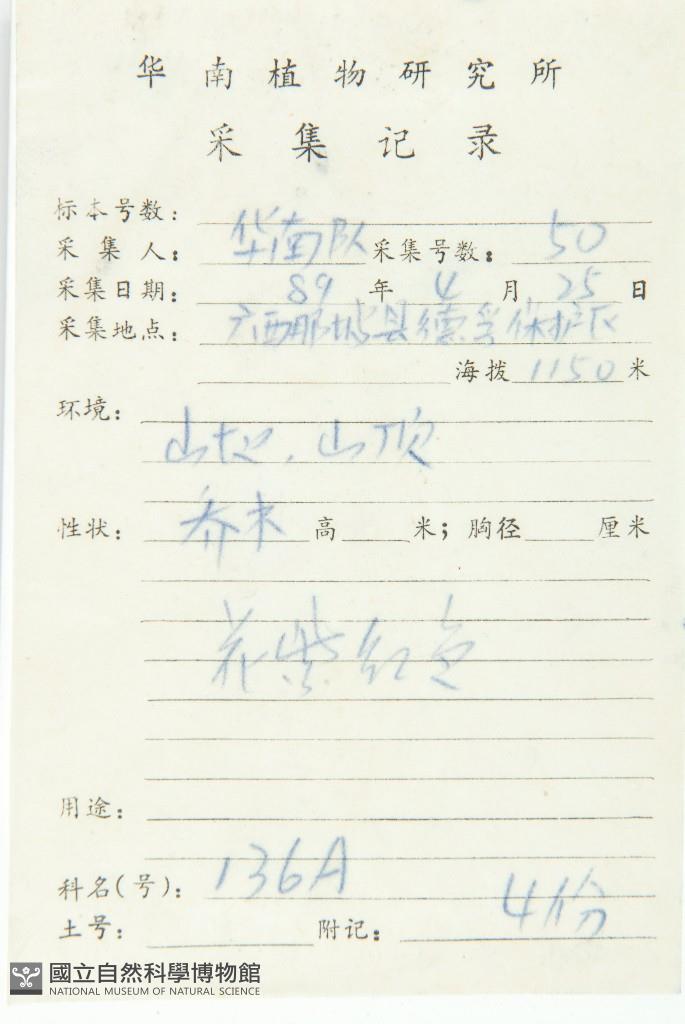 华南植物研究所
采集记录
标本号数：
采集人：华南队 采集号数：50
采集日期：89年4月25日
采集地点：广西那坡县德孚保护区
海拨1150米
环境：
山地，山顶
性状：乔木 高 米；胸径 厘米
花紫红色
用途：
科名(号)：136A
土号： 附记：4份
國立自然科學博物館
NATIONAL MUSEUM OF NATURAL SCIENCE